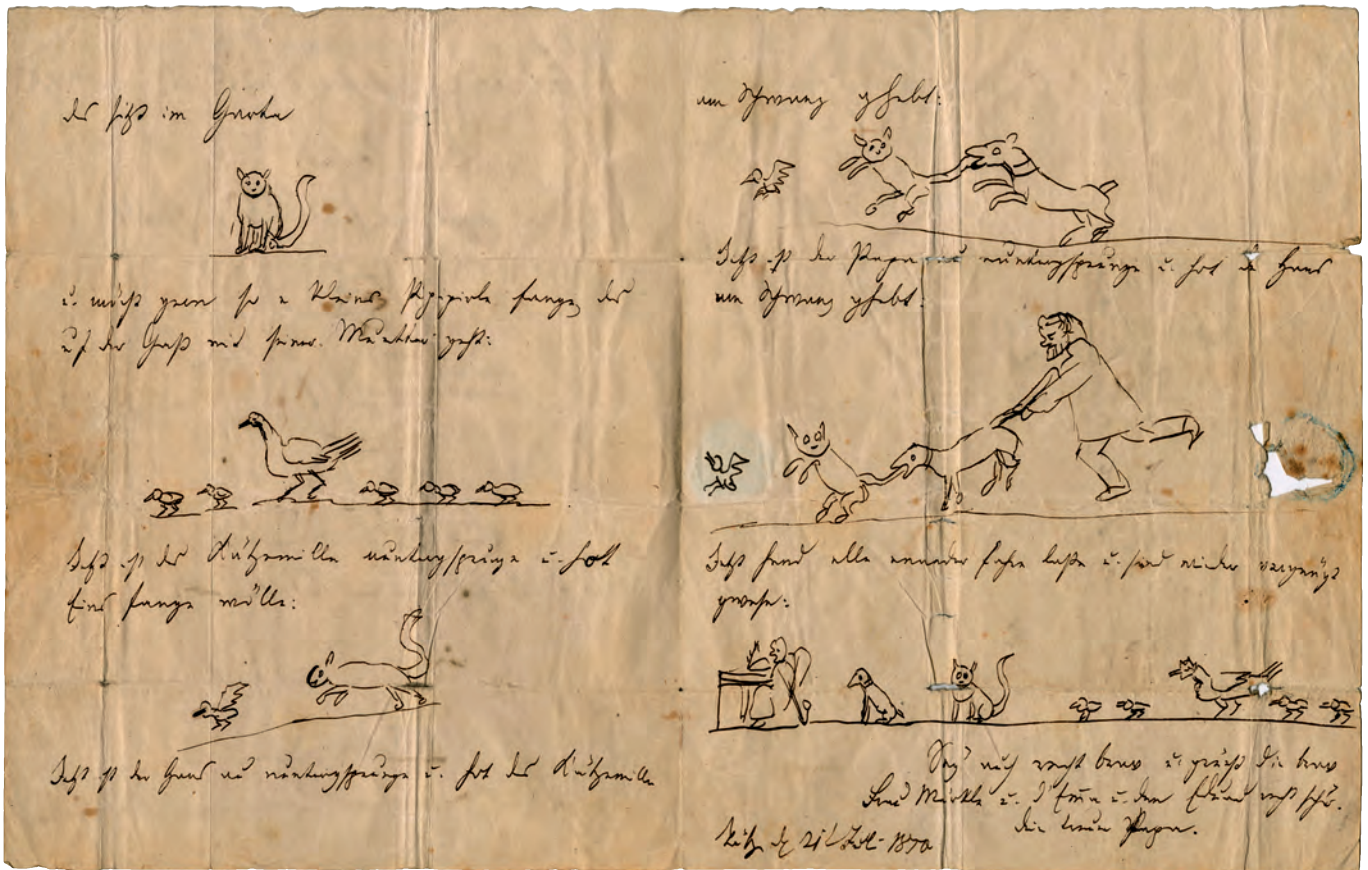 des sitzt im Garta
u. möcht gern so e kleins fange, des
uf der Gaß mit seiner Muetter geht:
Jetzt ist des Kätzemille nuntergsprunge u. hott
Eins fange wölle:
Jetzt ist der Hans au nuntergsprunge u. hot des Kätzemille
am Schwanz ghebt:
Jetzt ist der Papa au nuntergsprunge u. hot de Hans
am Schwanz ghebt.
Jetzt hend alle enander fahre laße u. sind wider vergnügt
gwese:
Sey auch recht brav u. grüß die brav
Frau Märkle u. d'Emma u. den Eduard recht schö.
dein treuer Papa.
21 Juli 1870